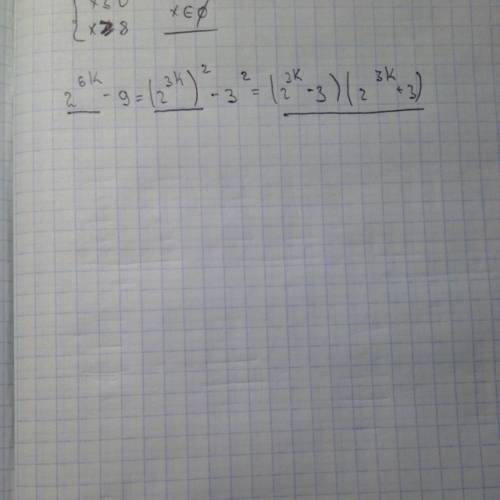 { x≤0
x>8 x∈∅
2^{6k} - 9 = (2^{3k})^2 - 3^2 = (2^{3k} - 3)(2^{3k} + 3)